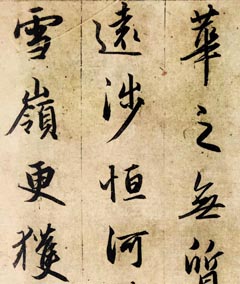 華之無質
遠涉恒河
雪嶺更獲